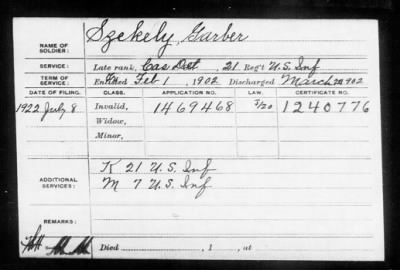 NAME OF SOLDIER: Szekely, Garber
SERVICE: Late rank, Cas Det, 21 Reg't U.S. Inf
TERM OF SERVICE: Enlisted Feb 1, 1902 Discharged March 1902
DATE OF FILING. CLASS. APPLICATION NO. LAW. CERTIFICATE NO.
1922 July 8 Invalid, 1469468 3/20 1240776
Widow,
Minor,
ADDITIONAL SERVICES: K 21 U.S. Inf
M 7 U.S. Inf
REMARKS:
Died , 1 , at